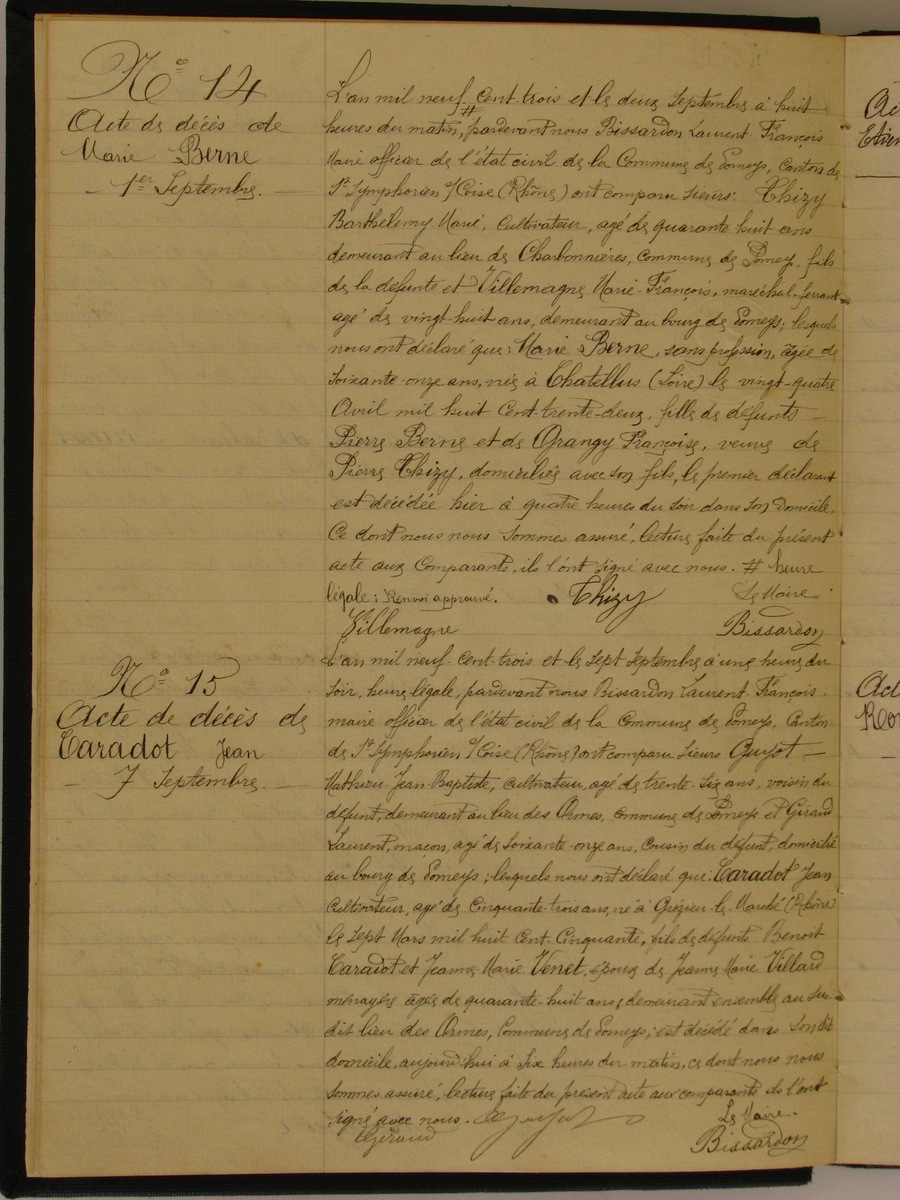 N° 14
Acte de décès de
Marie Berne
– 1er Septembre. –
L'an mil neuf # cent-trois et le deux Septembre à huit
heures du matin, pardevant nous Bissardon Laurent-François
Maire officier de l'état civil de la Commune de Pomeys, Canton de
St Symphorien s/Coise (Rhône) ont comparu Sieurs: Thizy
Barthélemy Marie, Cultivateur, agé de quarante huit ans
demeurant au lieu de Charbonnières, commune de Pomeys, fils
de la défunte et Villemagne Marie-François, maréchal-ferrant
agé de vingt-huit ans, demeurant au bourg de Pomeys; lesquels
nous ont déclaré que: Marie Berne, sans profession, âgée de
Soixante-onze ans, née à Chatellus (Loire) le vingt-quatre
Avril mil huit cent-trente-deux, fille de défunts –
Pierre Berne et de Grangy Françoise, veuve de
Pierre Thizy, domiciliée avec son fils, le premier déclarant
est décédée hier à quatre heures du soir dans son domicile.
Ce dont nous nous sommes assuré, lecture faite du présent
acte aux Comparants, ils l'ont signé avec nous. # heure
légale: Renvoi approuvé. Thizy Le Maire.
Villemagne Bissardon
N° 15
Acte de décès de
Caradot Jean
– 7 Septembre. –
L'an mil neuf-cent-trois et le sept Septembre à une heure du
Soir, heure légale, pardevant nous Bissardon Laurent-François,
maire officier de l'état civil de la Commune de Pomeys, Canton
de St Symphorien s/Coise (Rhône) ont comparu Sieurs Guyot –
Mathieu-Jean-Baptiste, Cultivateur, agé de trente-six ans, voisin du
défunt, demeurant au lieu des Ormes, commune de Pomeys et Giraud
Laurent, maçon, agé de soixante-onze ans, cousin du défunt, domicilié
au bourg de Pomeys; lesquels nous ont déclaré que: Caradot Jean
Cultivateur, agé de Cinquante-trois ans, né à Grézieu-le-Marché (Rhône)
le Sept Mars mil huit cent-Cinquante, fils de défunts Benoit
Caradot et Jeanne-Marie Venet, époux de Jeanne Marie Villard
ménagère âgée de quarante-huit ans, demeurant ensemble au sus-
dit lieu des Ormes, Commune de Pomeys; est décédé dans son dit
domicile, aujourd'hui à six heures du matin, ce dont nous nous
sommes assuré, lecture faite du présent acte aux comparants ils l'ont
signé avec nous. Guyot Le Maire.
Giraud Bissardon
Ac
Etien
Act